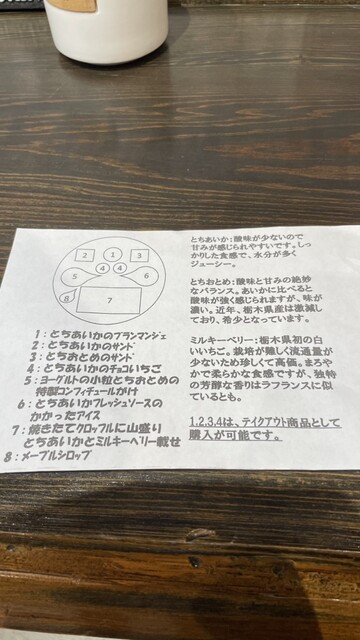 2
1
3
4
4
5
6
8
7
1：とちあいかのブランマンジェ
2：とちあいかのサンド
3：とちおとめのサンド
4：とちあいかのチョコいちご
5：ヨーグルトの小粒とちおとめの
特製コンフィチュールがけ
6：とちあいかフレッシュソースの
かかったアイス
7：焼きたてクロッフルに山盛り
とちあいかとミルキーベリー載せ
8：メープルシロップ
とちあいか：酸味が少ないので
甘みが感じられやすいです。しっ
かりした食感で、水分が多く
ジューシー。
とちおとめ：酸味と甘みの絶妙
なバランス。あいかに比べると
酸味が強く感じられますが、味が
濃い。近年、栃木県産は激減し
ており、希少となっています。
ミルキーベリー：栃木県初の白
いいちご。栽培が難しく流通量が
少ないため珍しくて高価。まろや
かで柔らかな食感ですが、独特
の芳醇な香りはラフランスに似
ているとも。
1.2.3.4は、テイクアウト商品として
購入が可能です。